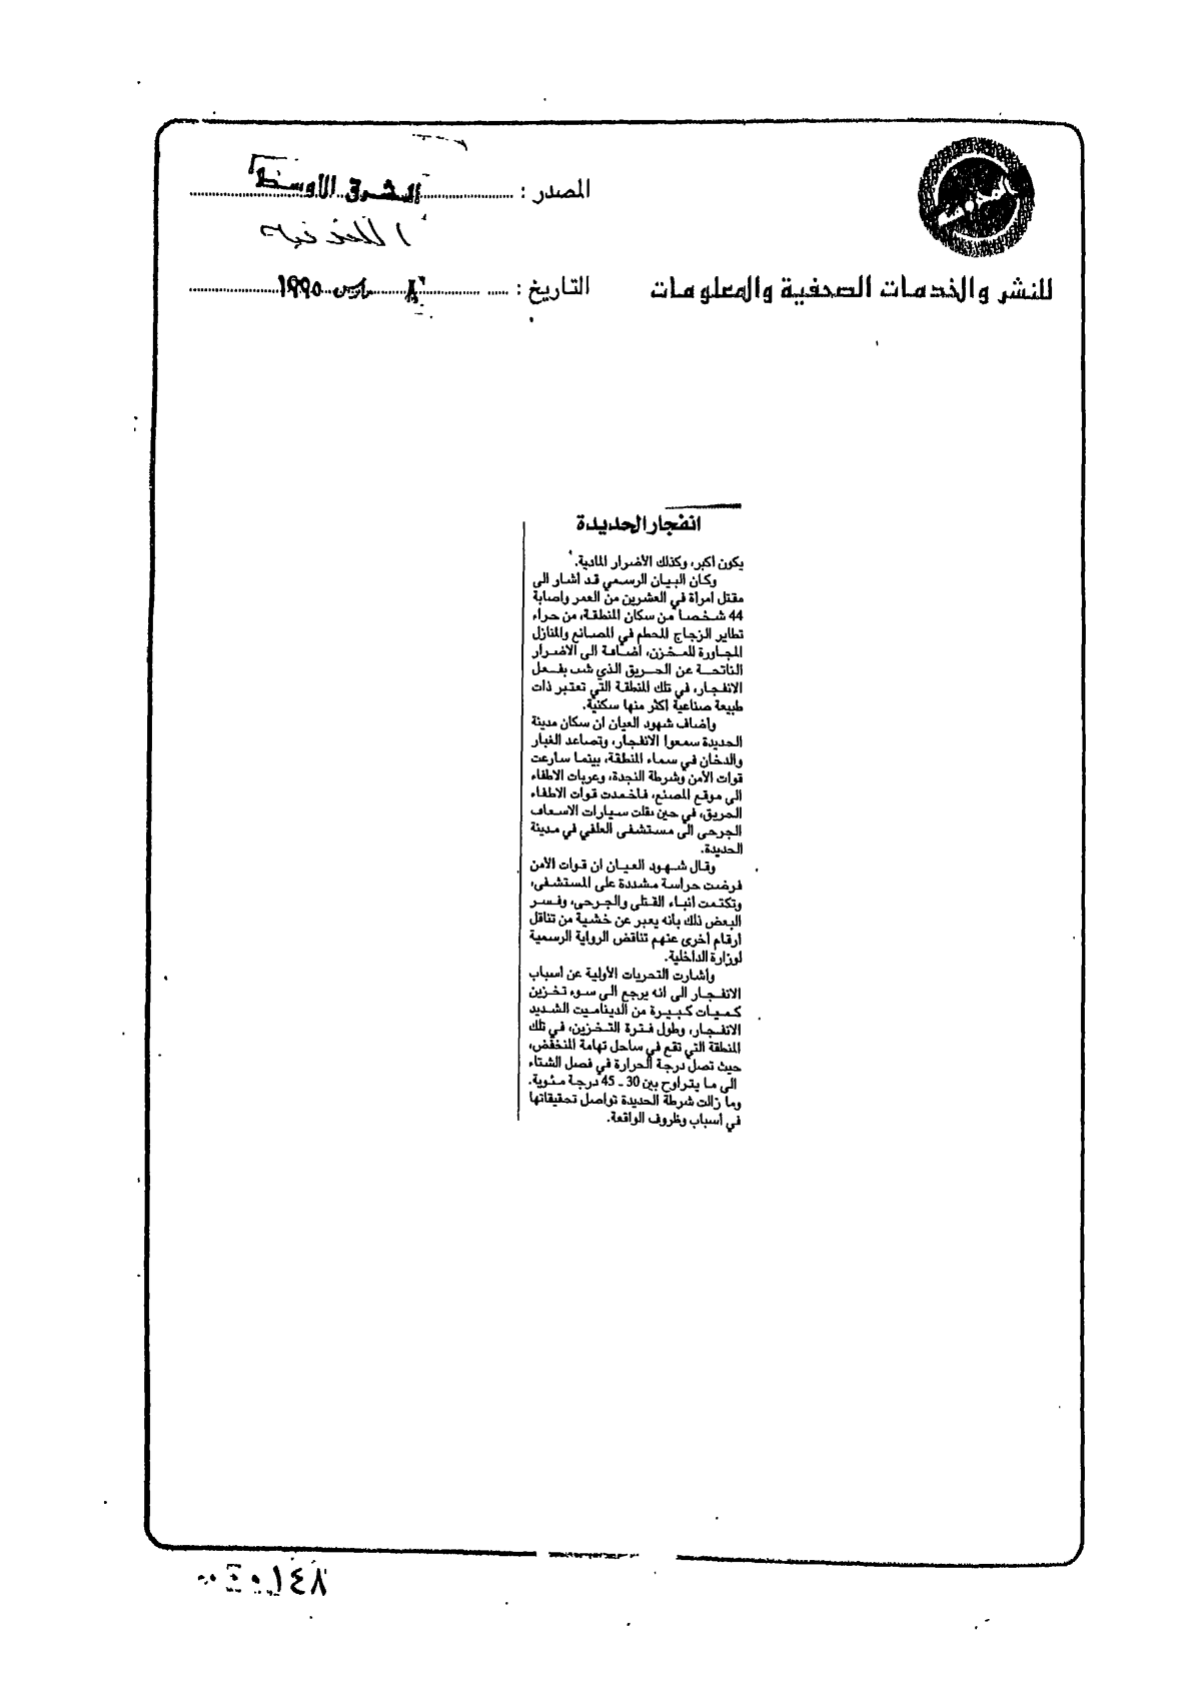 المصدر : الشرق الأوسط
اللندنية
للنشر والخدمات الصحفية والمعلومات
التاريخ : مارس ١٩٩٥
انفجار الحديدة
يكون أكبر، وكذلك الأضرار المادية.
وكان البيان الرسمي قد أشار الى
مقتل امرأة في العشرين من العمر واصابة
44 شخصاً من سكان المنطقة، من جراء
تطاير الزجاج المحطم في المصانع والمنازل
المجاورة للمخزن، اضافة الى الاضرار
الناتجة عن الحريق الذي شب بفعل
الانفجار، في تلك المنطقة التي تعتبر ذات
طبيعة صناعية اكثر منها سكنية.
وأضاف شهود العيان ان سكان مدينة
الحديدة سمعوا الانفجار، وتصاعد الغبار
والدخان في سماء المنطقة، بينما سارعت
قوات الأمن وشرطة النجدة، وعربات الاطفاء
الى موقع المصنع، فاخمدت قوات الاطفاء
الحريق، في حين نقلت سيارات الاسعاف
الجرحى الى مستشفى العلفي في مدينة
الحديدة.
وقال شهود العيان ان قوات الأمن
فرضت حراسة مشددة على المستشفى،
وتكتمت انباء القتلى والجرحى، وفسر
البعض ذلك بانه يعبر عن خشية من تناقل
ارقام أخرى عنهم تناقض الرواية الرسمية
لوزارة الداخلية.
وأشارت التحريات الأولية عن أسباب
الانفجار الى انه يرجع الى سوء تخزين
كميات كبيرة من الديناميت الشديد
الانفجار، وطول فترة التخزين، في تلك
المنطقة التي تقع في ساحل تهامة المنخفض،
حيث تصل درجة الحرارة في فصل الشتاء
الى ما يتراوح بين 30 ـ 45 درجة مئوية.
وما زالت شرطة الحديدة تواصل تحقيقاتها
في أسباب وظروف الواقعة.